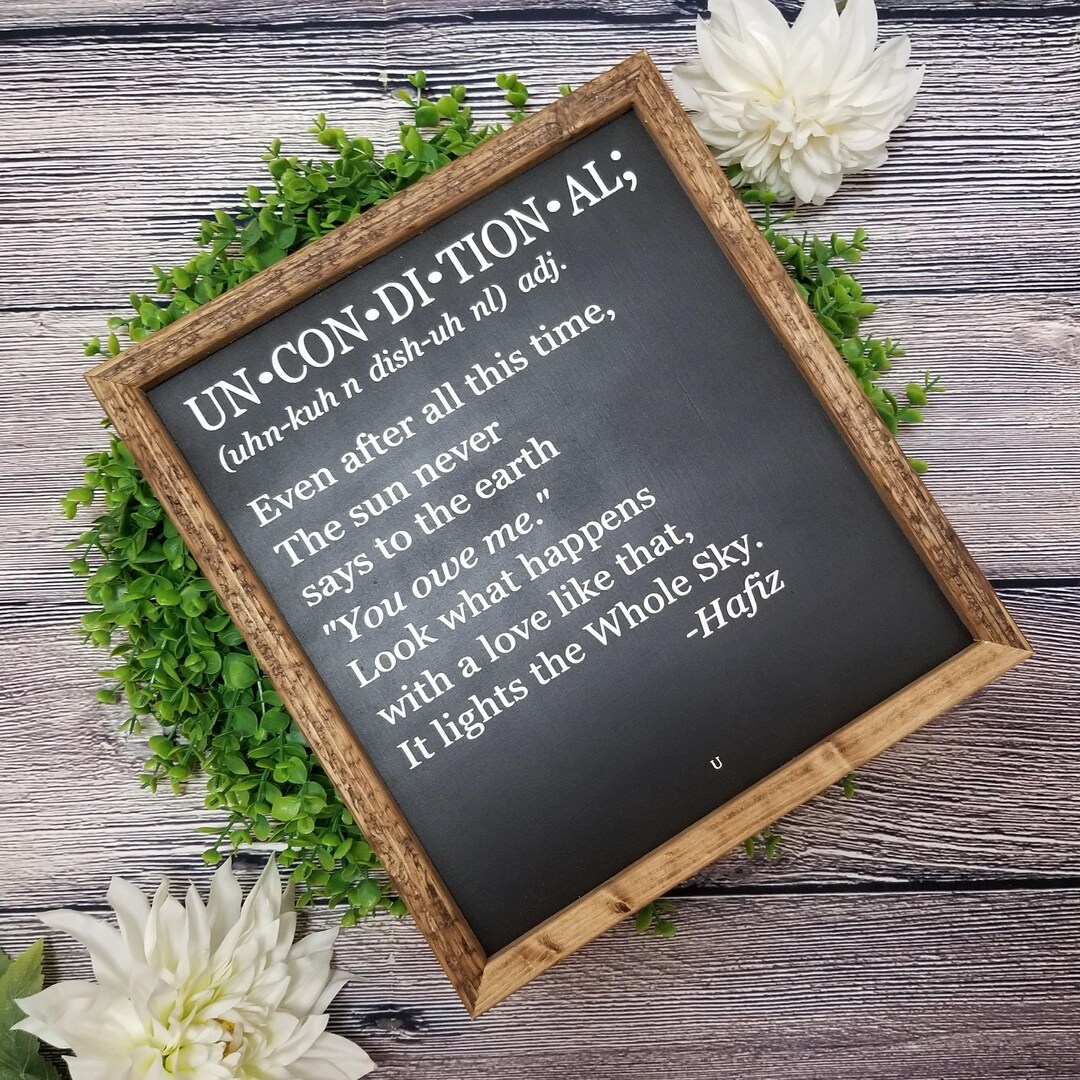 UN•CON•DI•TION•AL;
(uhn-kuh n dish-uh nl) adj.
Even after all this time,
The sun never
says to the earth
"You owe me."
Look what happens
with a love like that,
It lights the Whole Sky.
-Hafiz
U